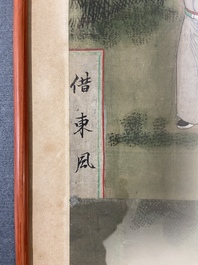 借東風